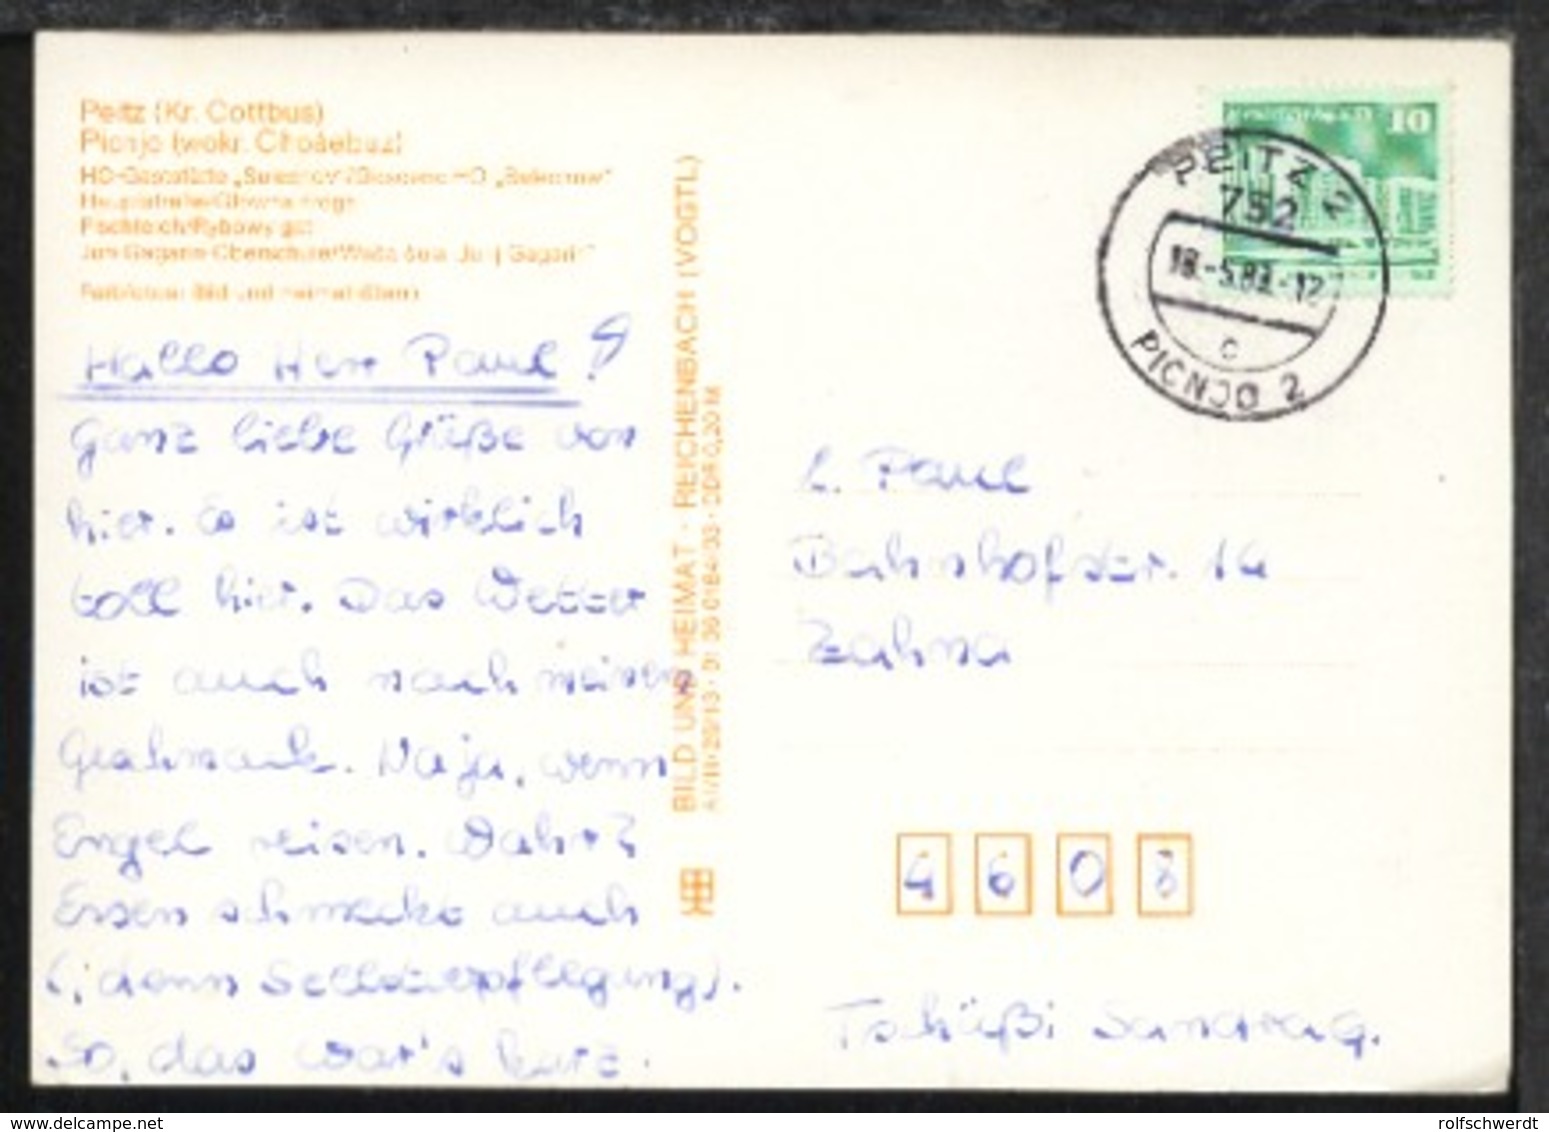 Peitz (Kr. Cottbus)
Picnjo (wokr. Chośebuz)
HO-Gaststätte
Hauptstraße/Głowna droga
Fischteich/Rybowy gat
Juri-Gagarin-Oberschule/Wuša šula „Jurij Gagarin“
Farbfotos: Bild und Heimat
Hallo Herr Paul!
Ganz liebe Grüße von
hier. Es ist wirklich
toll hier. Das Wetter
ist auch nach meinem
Geschmack. Naja, wenn
Engel reisen. Wahr?
Essen schmeckt auch
(, denn Selbstverpflegung).
So, das war's kurz.
BILD UND HEIMAT · REICHENBACH (VOGTL)
DDR 0,20 M
10
PEITZ 2
752
18.-5.83.-12
c
PICNJO 2
L. Paul
Bahnhofstr. 14
Zahna
4 6 0 8
Tschüßi Sandra G.
delcampe.net
rolfschwerdt